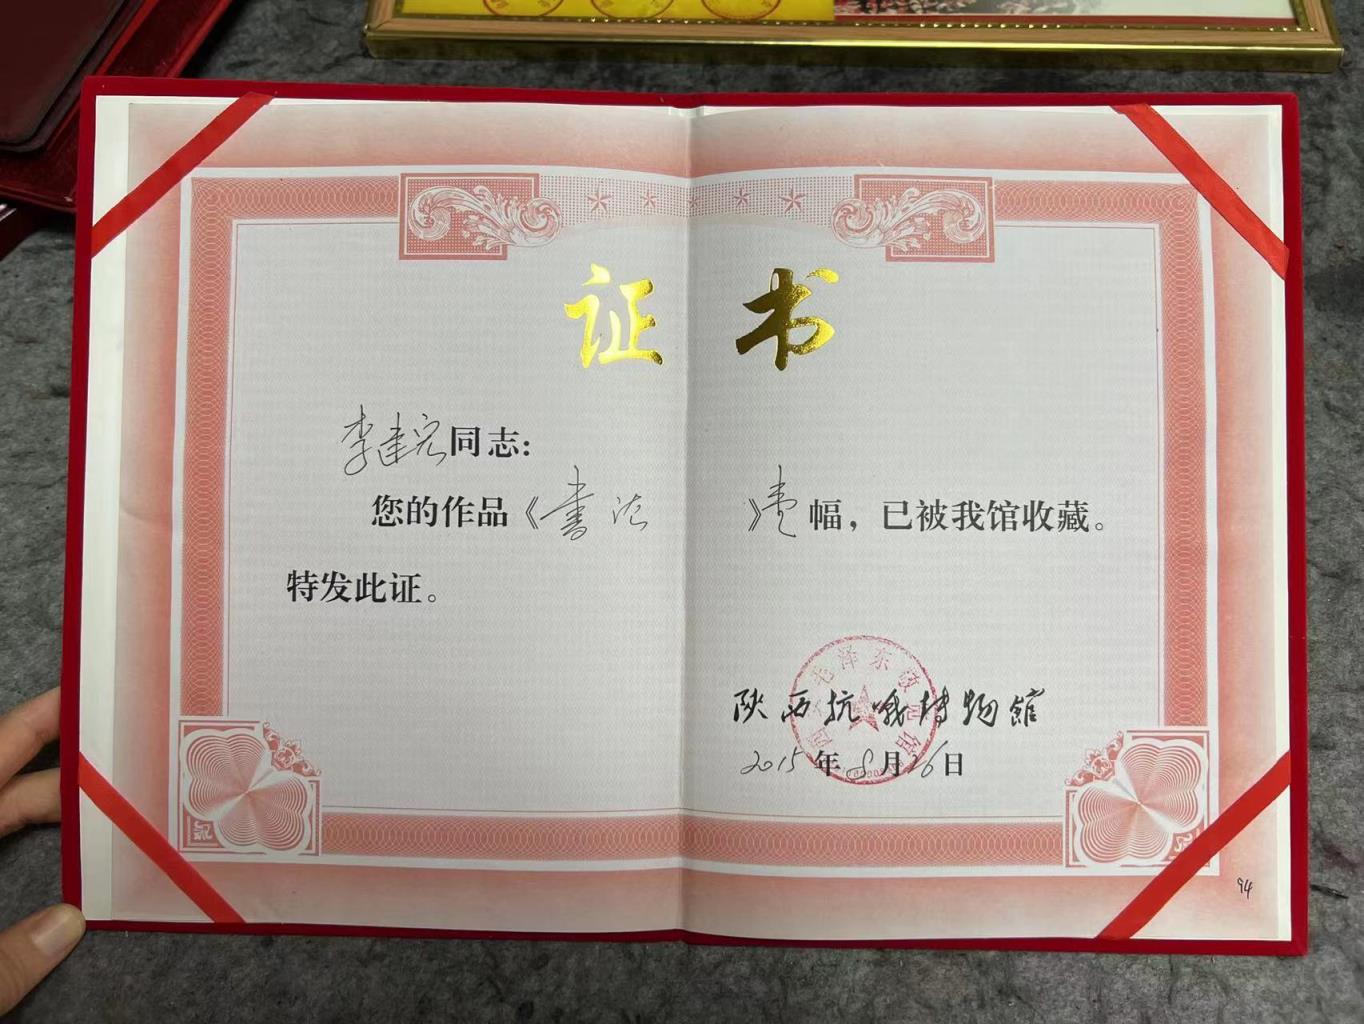 证书
李建宏同志:
您的作品《书法》壹幅，已被我馆收藏。
特发此证。
毛泽东故居馆
陕西抗战博物馆
2015年8月26日
94